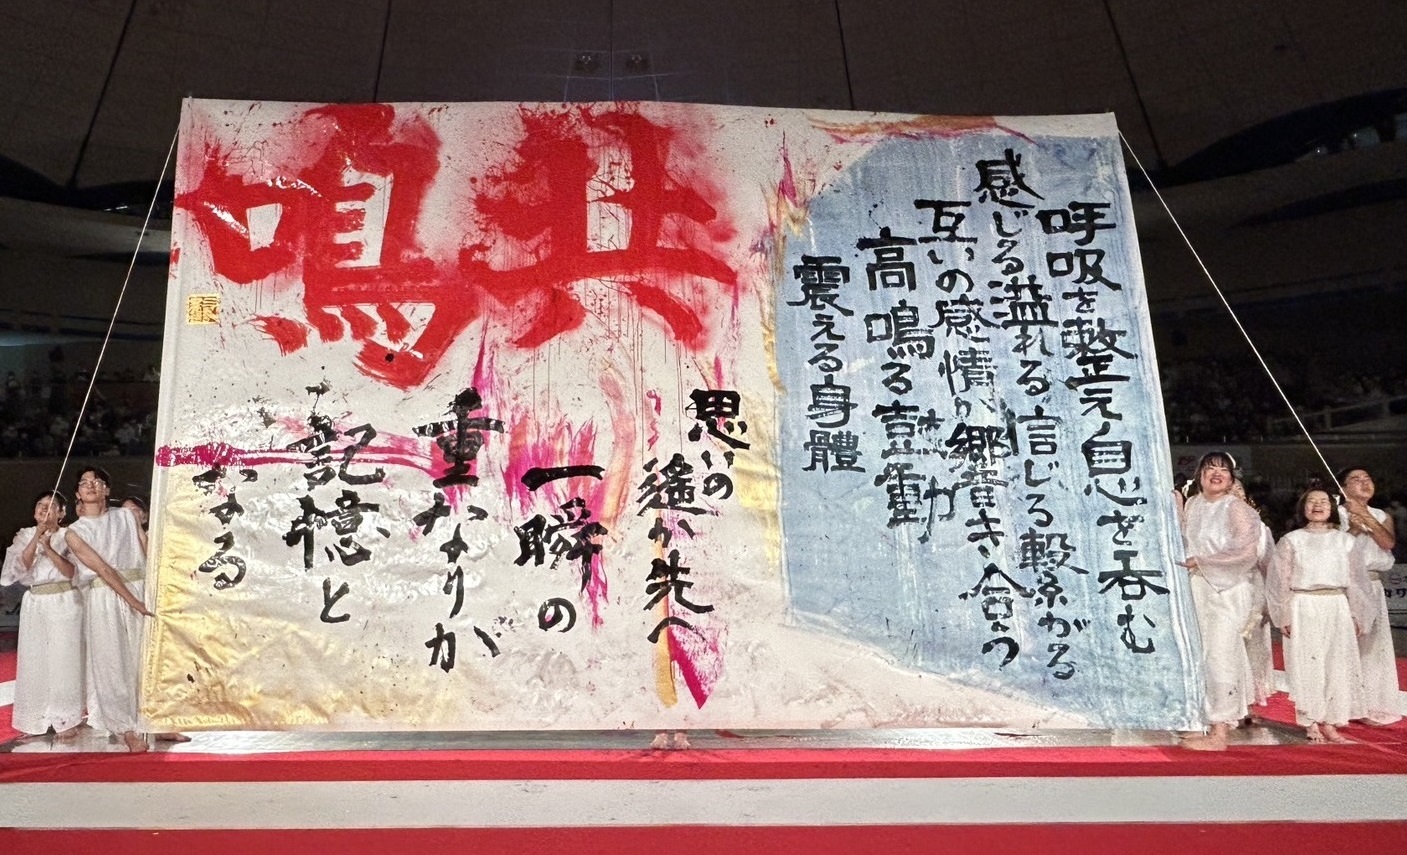 呼吸を整え息を呑む
感じる溢れる信じる繋がる
互いの感情が響き合う
高鳴る鼓動
震える身體
共鳴
思いの
遙か先へ
一瞬の
重なりが
記憶と
なる